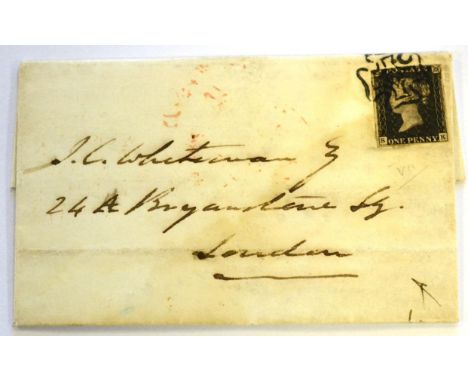 POSTAGE
ONE PENNY K
J. C. Whiteman
24 A Bryanstone Sq.
London